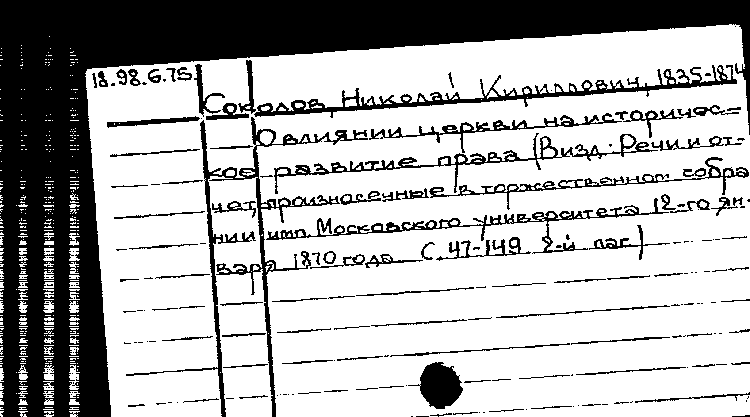 18.98.6.75.
Соколов, Николай Кириллович, 1835-1874
О влиянии церкви на историчес=
кое развитие права (В изд.: Речи и от=
чет, произнесенные в торжественном собра
нии имп. Московского университета 12-го ян-
варя 1870 года С. 47-149 2-й паг)